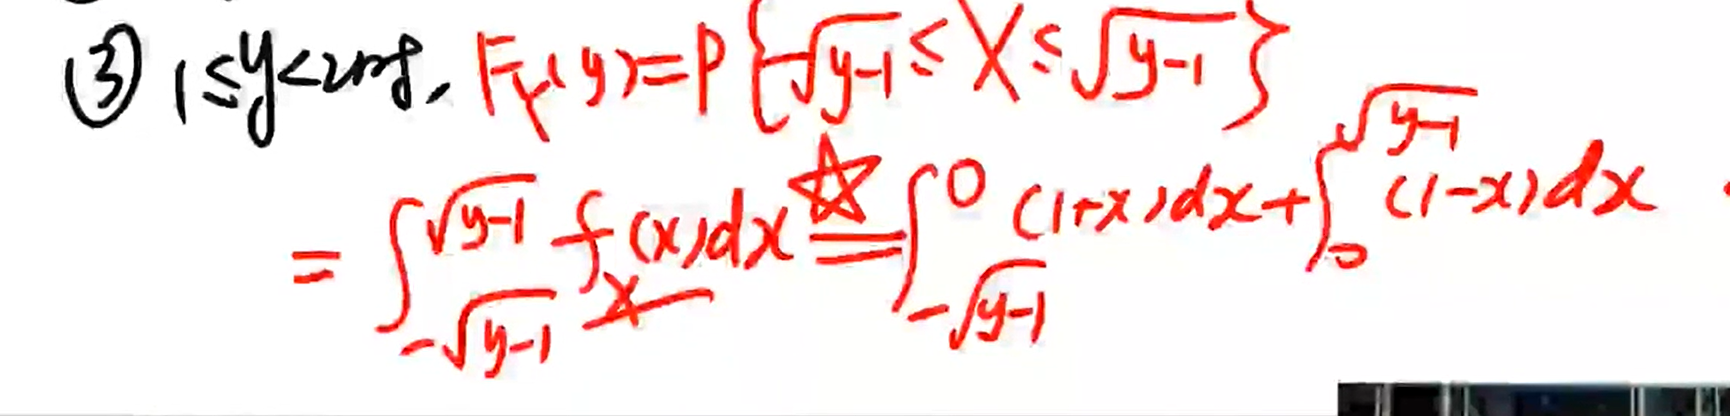 ③ 1≤y<2时, F_Y(y)=P{-√(y-1) ≤ X ≤ √(y-1)}
= ∫_{-√(y-1)}^{√(y-1)} f_X(x)dx ☆= ∫_{-√(y-1)}^{0} (1+x)dx + ∫_{0}^{√(y-1)} (1-x)dx